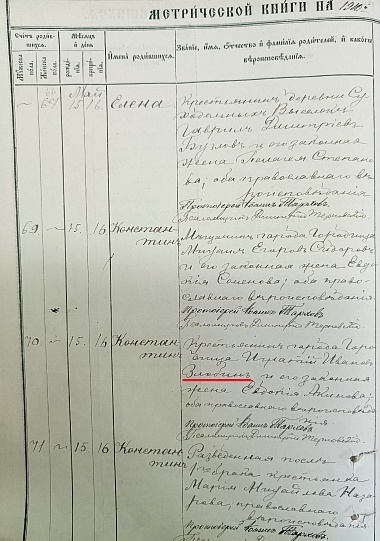 МЕТРИЧЕСКОЙ КНИГИ НА 1910
Счетъ родив-
шихся.
Мѣсяцъ
и день.
Имена родившихся.
Званіе, имя, отчество и фамилія родителей, и какого
вѣроисповѣданія.
Мужеска
пола.
Женска
пола.
рожде-
нія.
креще-
нія.
Май
15 16 Елена
Крестьянинъ деревни Су
ходольныхъ Выселокъ
Гавриилъ Димитріев
и его законная
жена Пелагея Степано
ва; оба православнаго вѣ
роисповѣданія
Протоіерей Іоаннъ Тарховъ
Псаломщикъ Димитрій
69 15. 16. Констан-
тинъ
Мѣщанинъ города
Михаилъ Егоровъ Сидоровъ
и его законная жена Евдо
кія Семенова; оба право-
славнаго вѣроисповѣданія
Протоіерей Іоаннъ Тарховъ
Псаломщикъ Димитрій
70 15 16 Констан-
тинъ
Крестьянинъ города
Игнатій Ивановъ
Злобинъ и его законная
жена Евдокія Акимова;
оба православнаго вѣроисповѣда
нія
Протоіерей Іоаннъ Тарховъ
Псаломщикъ Димитрій
71 15 16 Констан-
тинъ
Разведенная послѣ
брака крестьянка
Марія Михайлова Наза
рова, православнаго
вѣроисповѣданія
Протоіерей Іоаннъ Тарховъ